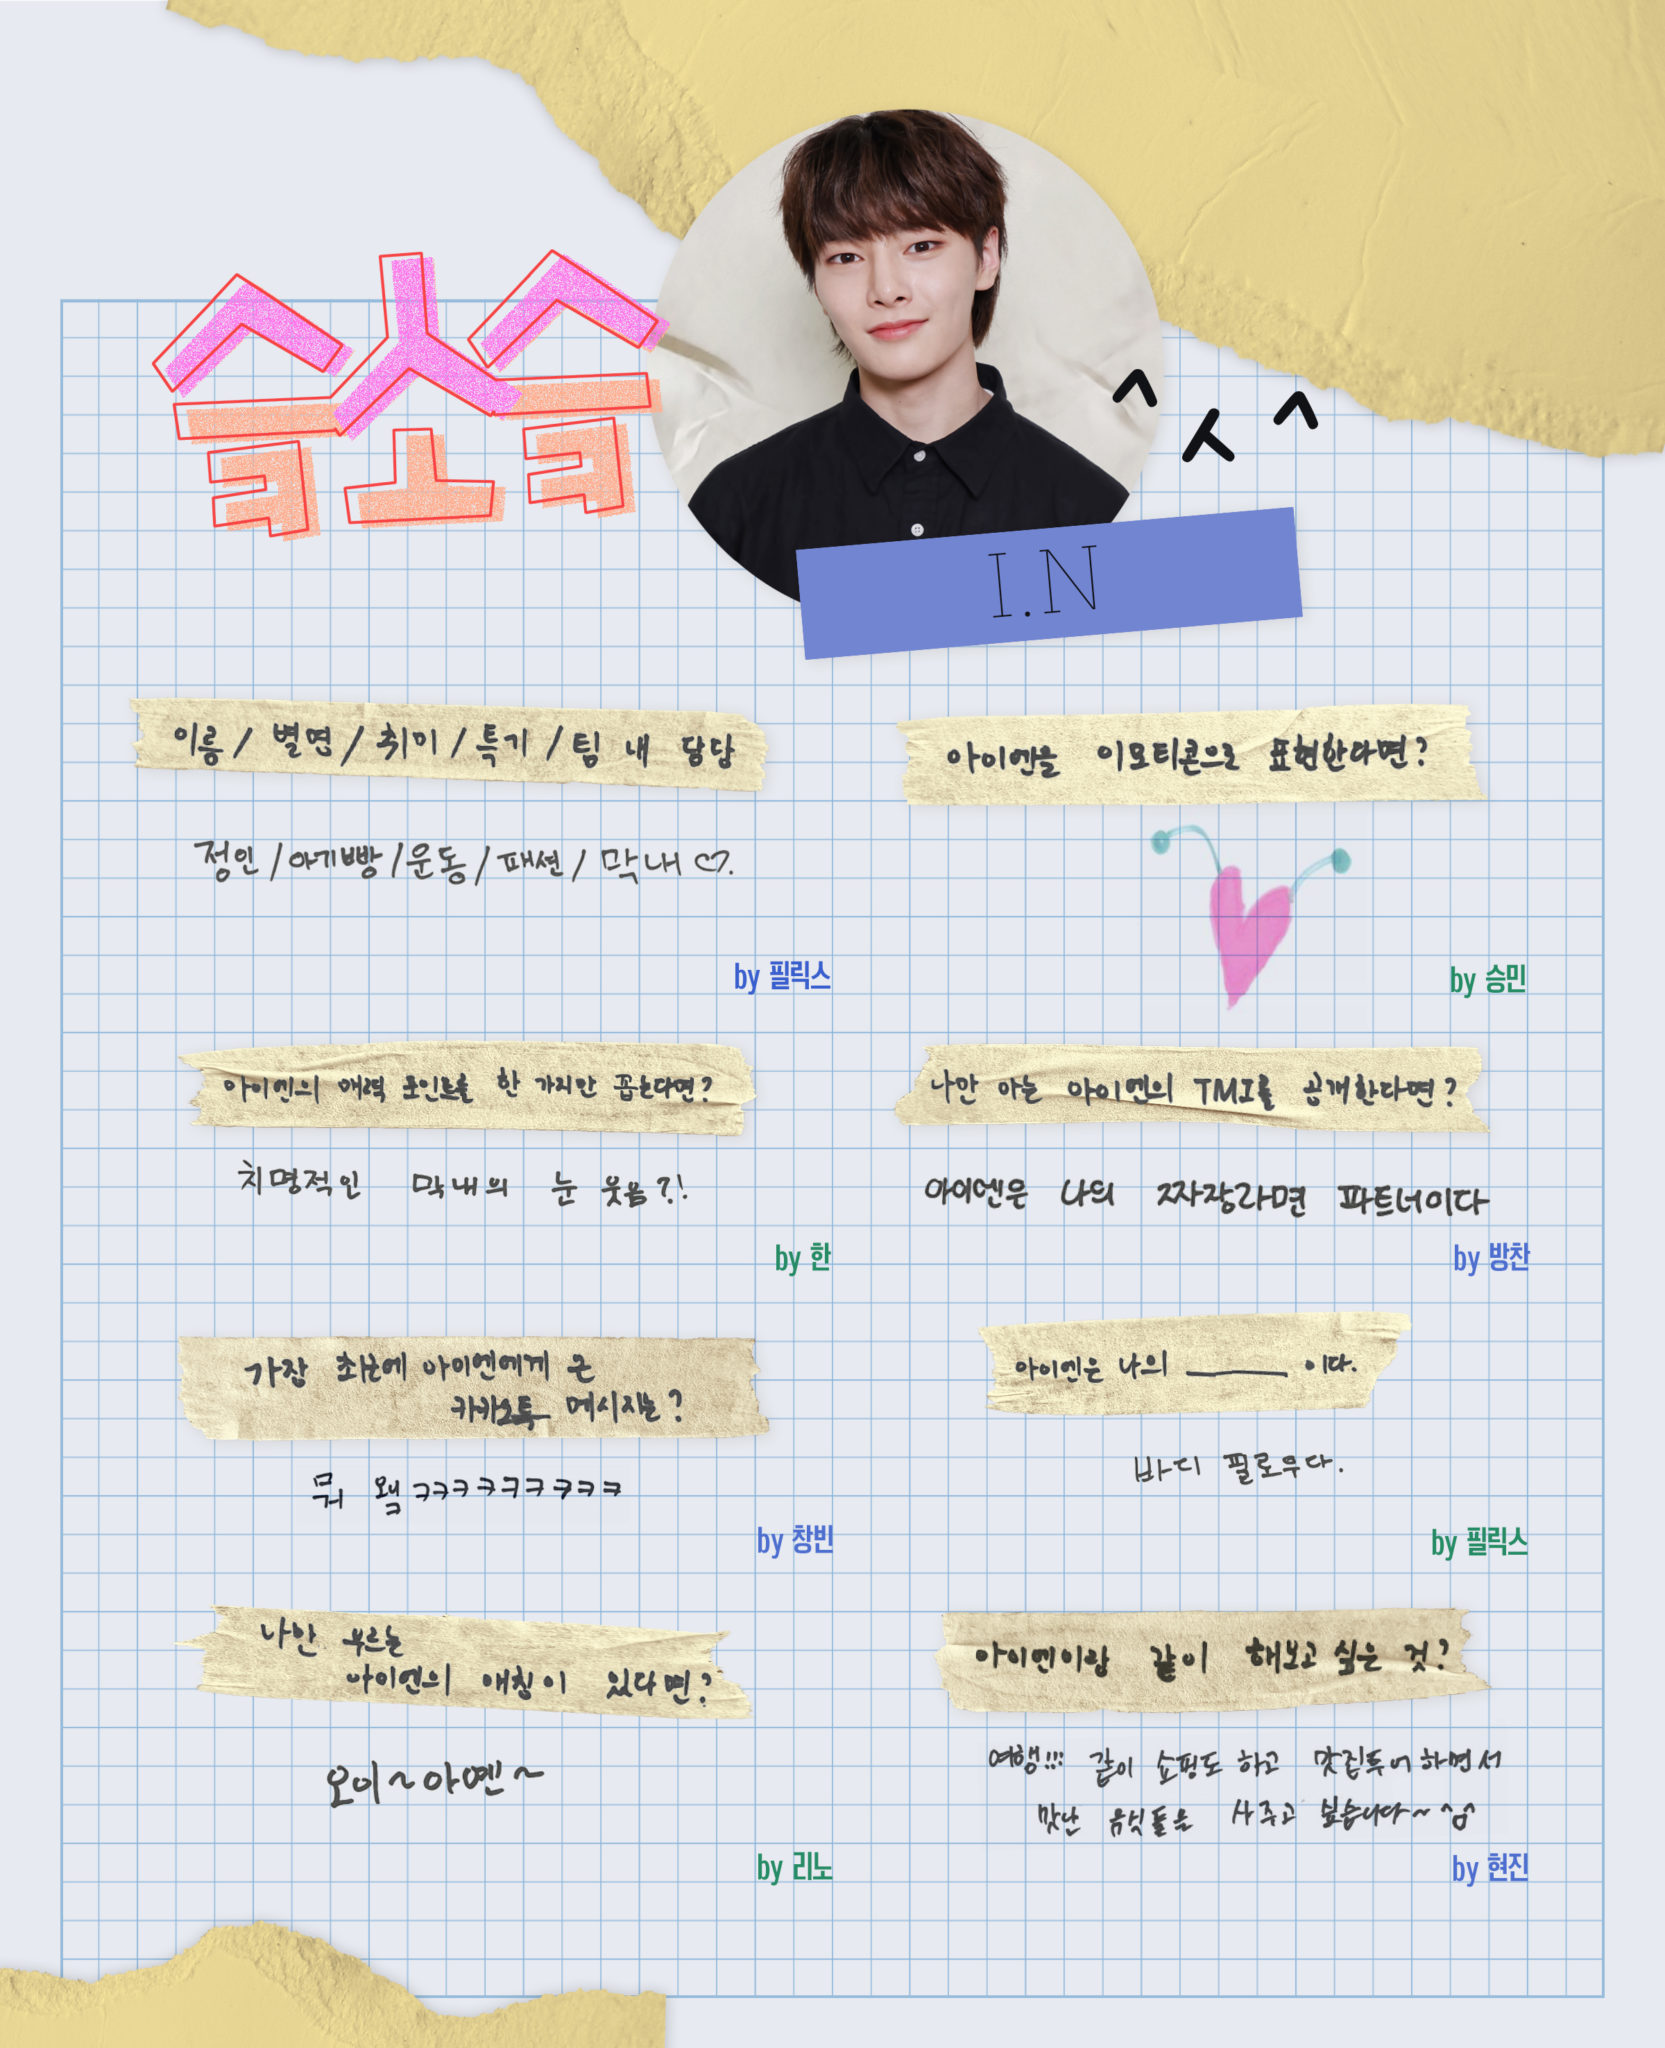 슼소슼
^ㅅ^
I.N
이름 / 별명 / 취미 / 특기 / 팀 내 담당
정인 / 아기빵 / 운동 / 패션 / 막내 ♡.
by 필릭스
아이엔을 이모티콘으로 표현한다면?
by 승민
아이엔의 매력 포인트를 한 가지만 꼽는다면?
치명적인 막내의 눈 웃음?!
by 한
나만 아는 아이엔의 TMI를 공개한다면?
아이엔은 나의 짜장라면 파트너이다
by 방찬
가장 최근에 아이엔에게 온
카카오톡 메시지는?
뭐 왜ㅋㅋㅋㅋㅋㅋㅋㅋㅋㅋ
by 창빈
아이엔은 나의 ______ 이다.
바디 필로우다.
by 필릭스
나만 부르는
아이엔의 애칭이 있다면?
오이~아옌~
by 리노
아이엔이랑 같이 해보고 싶은 것?
여행!!! 같이 쇼핑도 하고 맛집투어하면서
맛난 음식들을 사주고 싶습니다~ ^^
by 현진